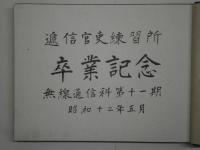 逓信官吏練習所
卒業記念
無線通信科第十一期
昭和十二年五月